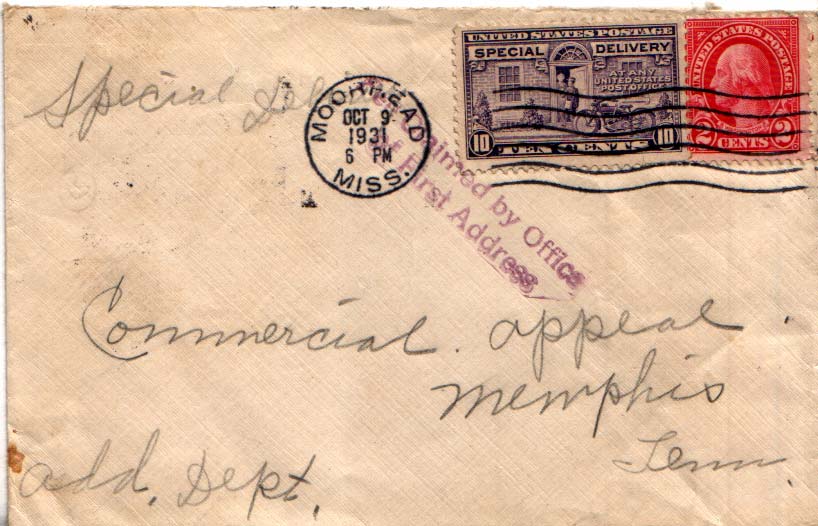 UNITED STATES POSTAGE
SPECIAL DELIVERY
AT ANY
UNITED STATES
POST OFFICE
10 TEN CENTS 10
UNITED STATES POSTAGE
2 CENTS 2
Special Del
MOORHEAD
OCT 9
1931
6 PM
MISS.
claimed by Office
of First Address
Commercial appeal
Memphis
Tenn.
add. Dept.